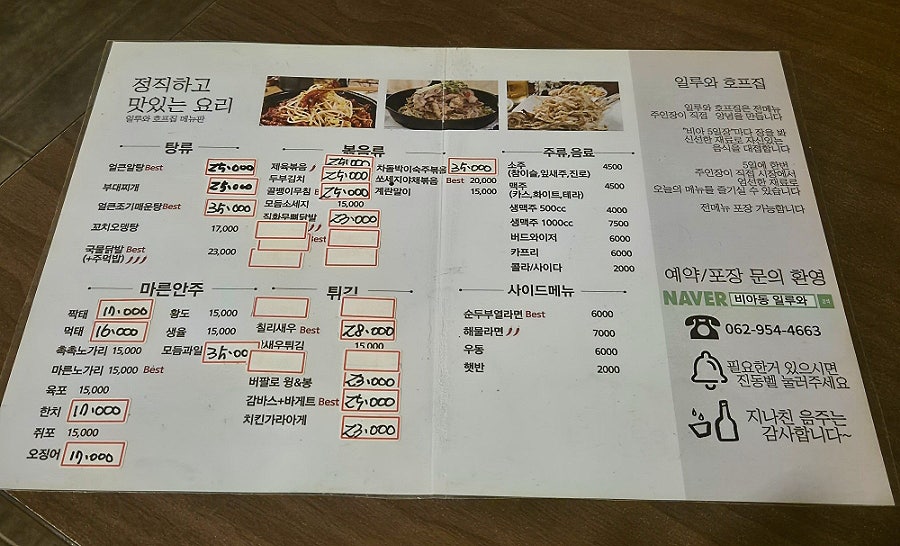 정직하고
맛있는 요리
일루와 호프집 메뉴판
탕류
얼큰알탕 Best 25,000
부대찌개 25,000
얼큰조기매운탕 Best 35,000
꼬치오뎅탕 17,000
국물닭발 Best 23,000
(+주먹밥)
볶음류
제육볶음 25,000
두부김치 25,000
골뱅이무침 B 25,000
모듬소세지 15,000
직화무뼈닭발 23,000
Best
차돌박이숙주볶음 35,000
쏘세지야채볶음 Best 20,000
계란말이 15,000
주류,음료
소주 4500
(참이슬,잎새주,진로)
맥주 4500
(카스,화이트,테라)
생맥주 500cc 4000
생맥주 1000cc 7500
버드와이저 6000
카프리 6000
콜라/사이다 2000
마른안주
짝태 17,000
먹태 16,000
촉촉노가리 15,000
마른노가리 15,000 Best
육포 15,000
한치 17,000
쥐포 15,000
오징어 17,000
황도 15,000
생율 15,000
모듬과일 35,000
튀김
칠리새우 Best 28,000
새우튀김 15,000
버팔로 윙&봉 23,000
감바스+바게트 Best 25,000
치킨가라아게 23,000
사이드메뉴
순두부열라면 Best 6000
해물라면 7000
우동 6000
햇반 2000
일루와 호프집
일루와 호프집은 전메뉴
주인장이 직접 양념을 만듭니다
"비아 5일장"마다 장을 봐
신선한 재료로 자신있는
음식을 대접합니다
5일에 한번
주인장이 직접 시장에서
엄선한 재료로
오늘의 메뉴를 즐기실 수 있습니다
전메뉴 포장 가능합니다
예약/포장 문의 환영
NAVER 비아동 일루와
062-954-4663
필요한거 있으시면
진동벨 눌러주세요
지나친 음주는
감사합니다~